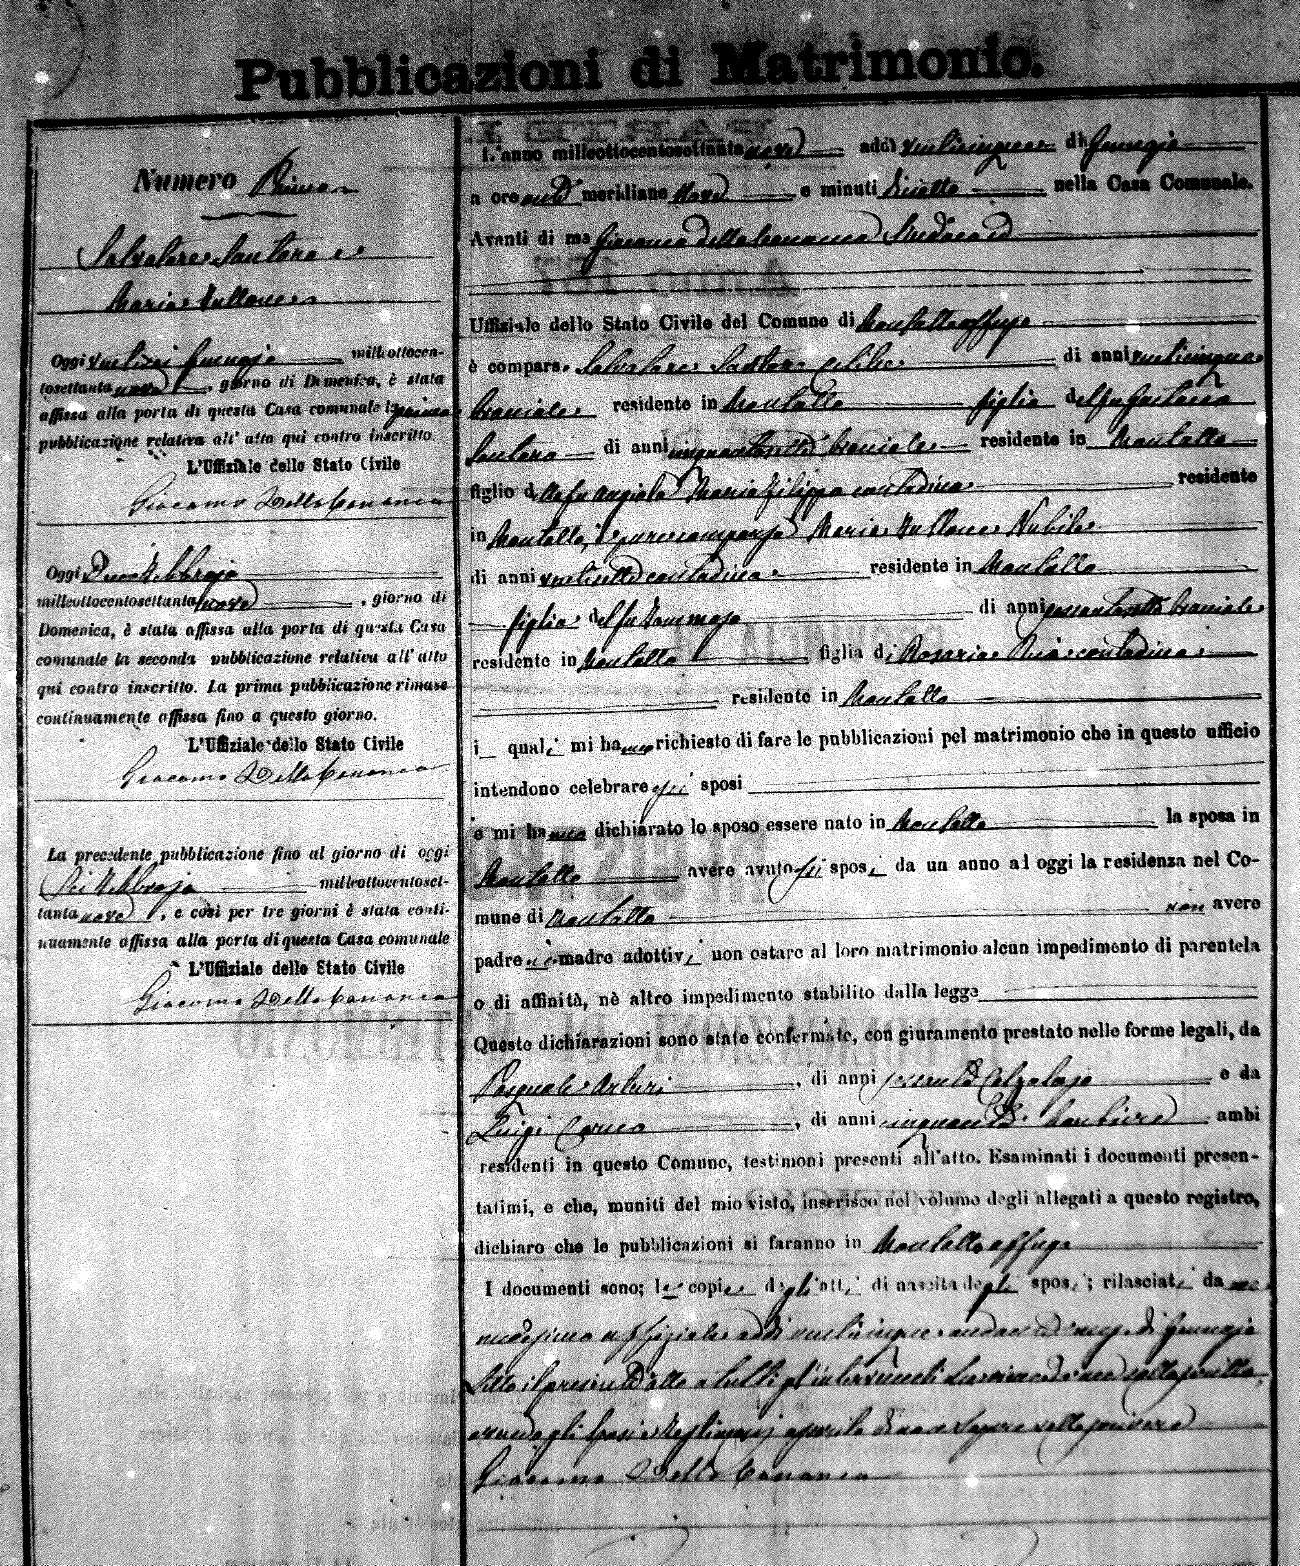 Pubblicazioni di Matrimonio.
Numero Primo
Salvatore Santoro e
Maria Nullone
Oggi ventisei Gennajo milleottocen-
tosettanta nove, giorno di Domenica, è stata
affissa alla porta di questa Casa comunale la prima
pubblicazione relativa all' atto qui contro inscritto.
L'Uffiziale dello Stato Civile
Giacomo Della Cananea
Oggi Due Febbrajo
milleottocentosettanta nove, giorno di
Domenica, è stata affissa alla porta di questa Casa
comunale la seconda pubblicazione relativa all' atto
qui contro inscritto. La prima pubblicazione rimase
continuamente affissa fino a questo giorno.
L'Uffiziale dello Stato Civile
Giacomo Della Cananea
La precedente pubblicazione fino al giorno di oggi
Sei Febbrajo milleottocentoset-
tanta nove, e così per tre giorni è stata conti-
nuamente affissa alla porta di questa Casa comunale
L'Uffiziale dello Stato Civile
Giacomo Della Cananea
L'anno milleottocentosettanta nove addì venticinque di Gennajo
a ore anti meridiane nove e minuti diciotto nella Casa Comunale.
Avanti di me Giacomo della Cananea Sindaco
Uffiziale dello Stato Civile del Comune di Montalto Uffugo
è comparso Salvatore Santoro celibe di anni venticinque
bracciale residente in Montalto figlio del fu Gaetano
Santoro di anni cinquantasette bracciale residente in Montalto
figlio della fu Angiola Maria Filippo contadina residente
in Montalto, è pure comparsa Maria Nullone Nubile
di anni ventisette contadina residente in Montalto
figlia del fu Tommaso di anni sessantasette bracciale
residente in Montalto figlia di Rosaria contadina
residente in Montalto
i quali mi hanno richiesto di fare le pubblicazioni pel matrimonio che in questo ufficio
intendono celebrare essi sposi
e mi hanno dichiarato lo sposo essere nato in Montalto la sposa in
Montalto avere avuto essi sposi da un anno al oggi la residenza nel Co-
mune di Montalto non avere
padre nè madre adottivi non ostare al loro matrimonio alcun impedimento di parentela
o di affinità, nè altro impedimento stabilito dalla legge
Queste dichiarazioni sono state confermate, con giuramento prestato nelle forme legali, da
Pasquale Arturi, di anni sessanta Calzolajo e da
Luigi Caruso, di anni cinquanta barbiere ambi
residenti in questo Comune, testimoni presenti all'atto. Esaminati i documenti presen-
tatimi, e che, muniti del mio visto, inserisco nel volume degli allegati a questo registro,
dichiaro che le pubblicazioni si faranno in Montalto Uffugo
I documenti sono; le copie degli atti di nascita degli sposi; rilasciati da me
medesimo uffiziale addì venticinque andante mese di Gennajo
Letto il presente atto a tutti gl'intervenuti
Giacomo Della Cananea